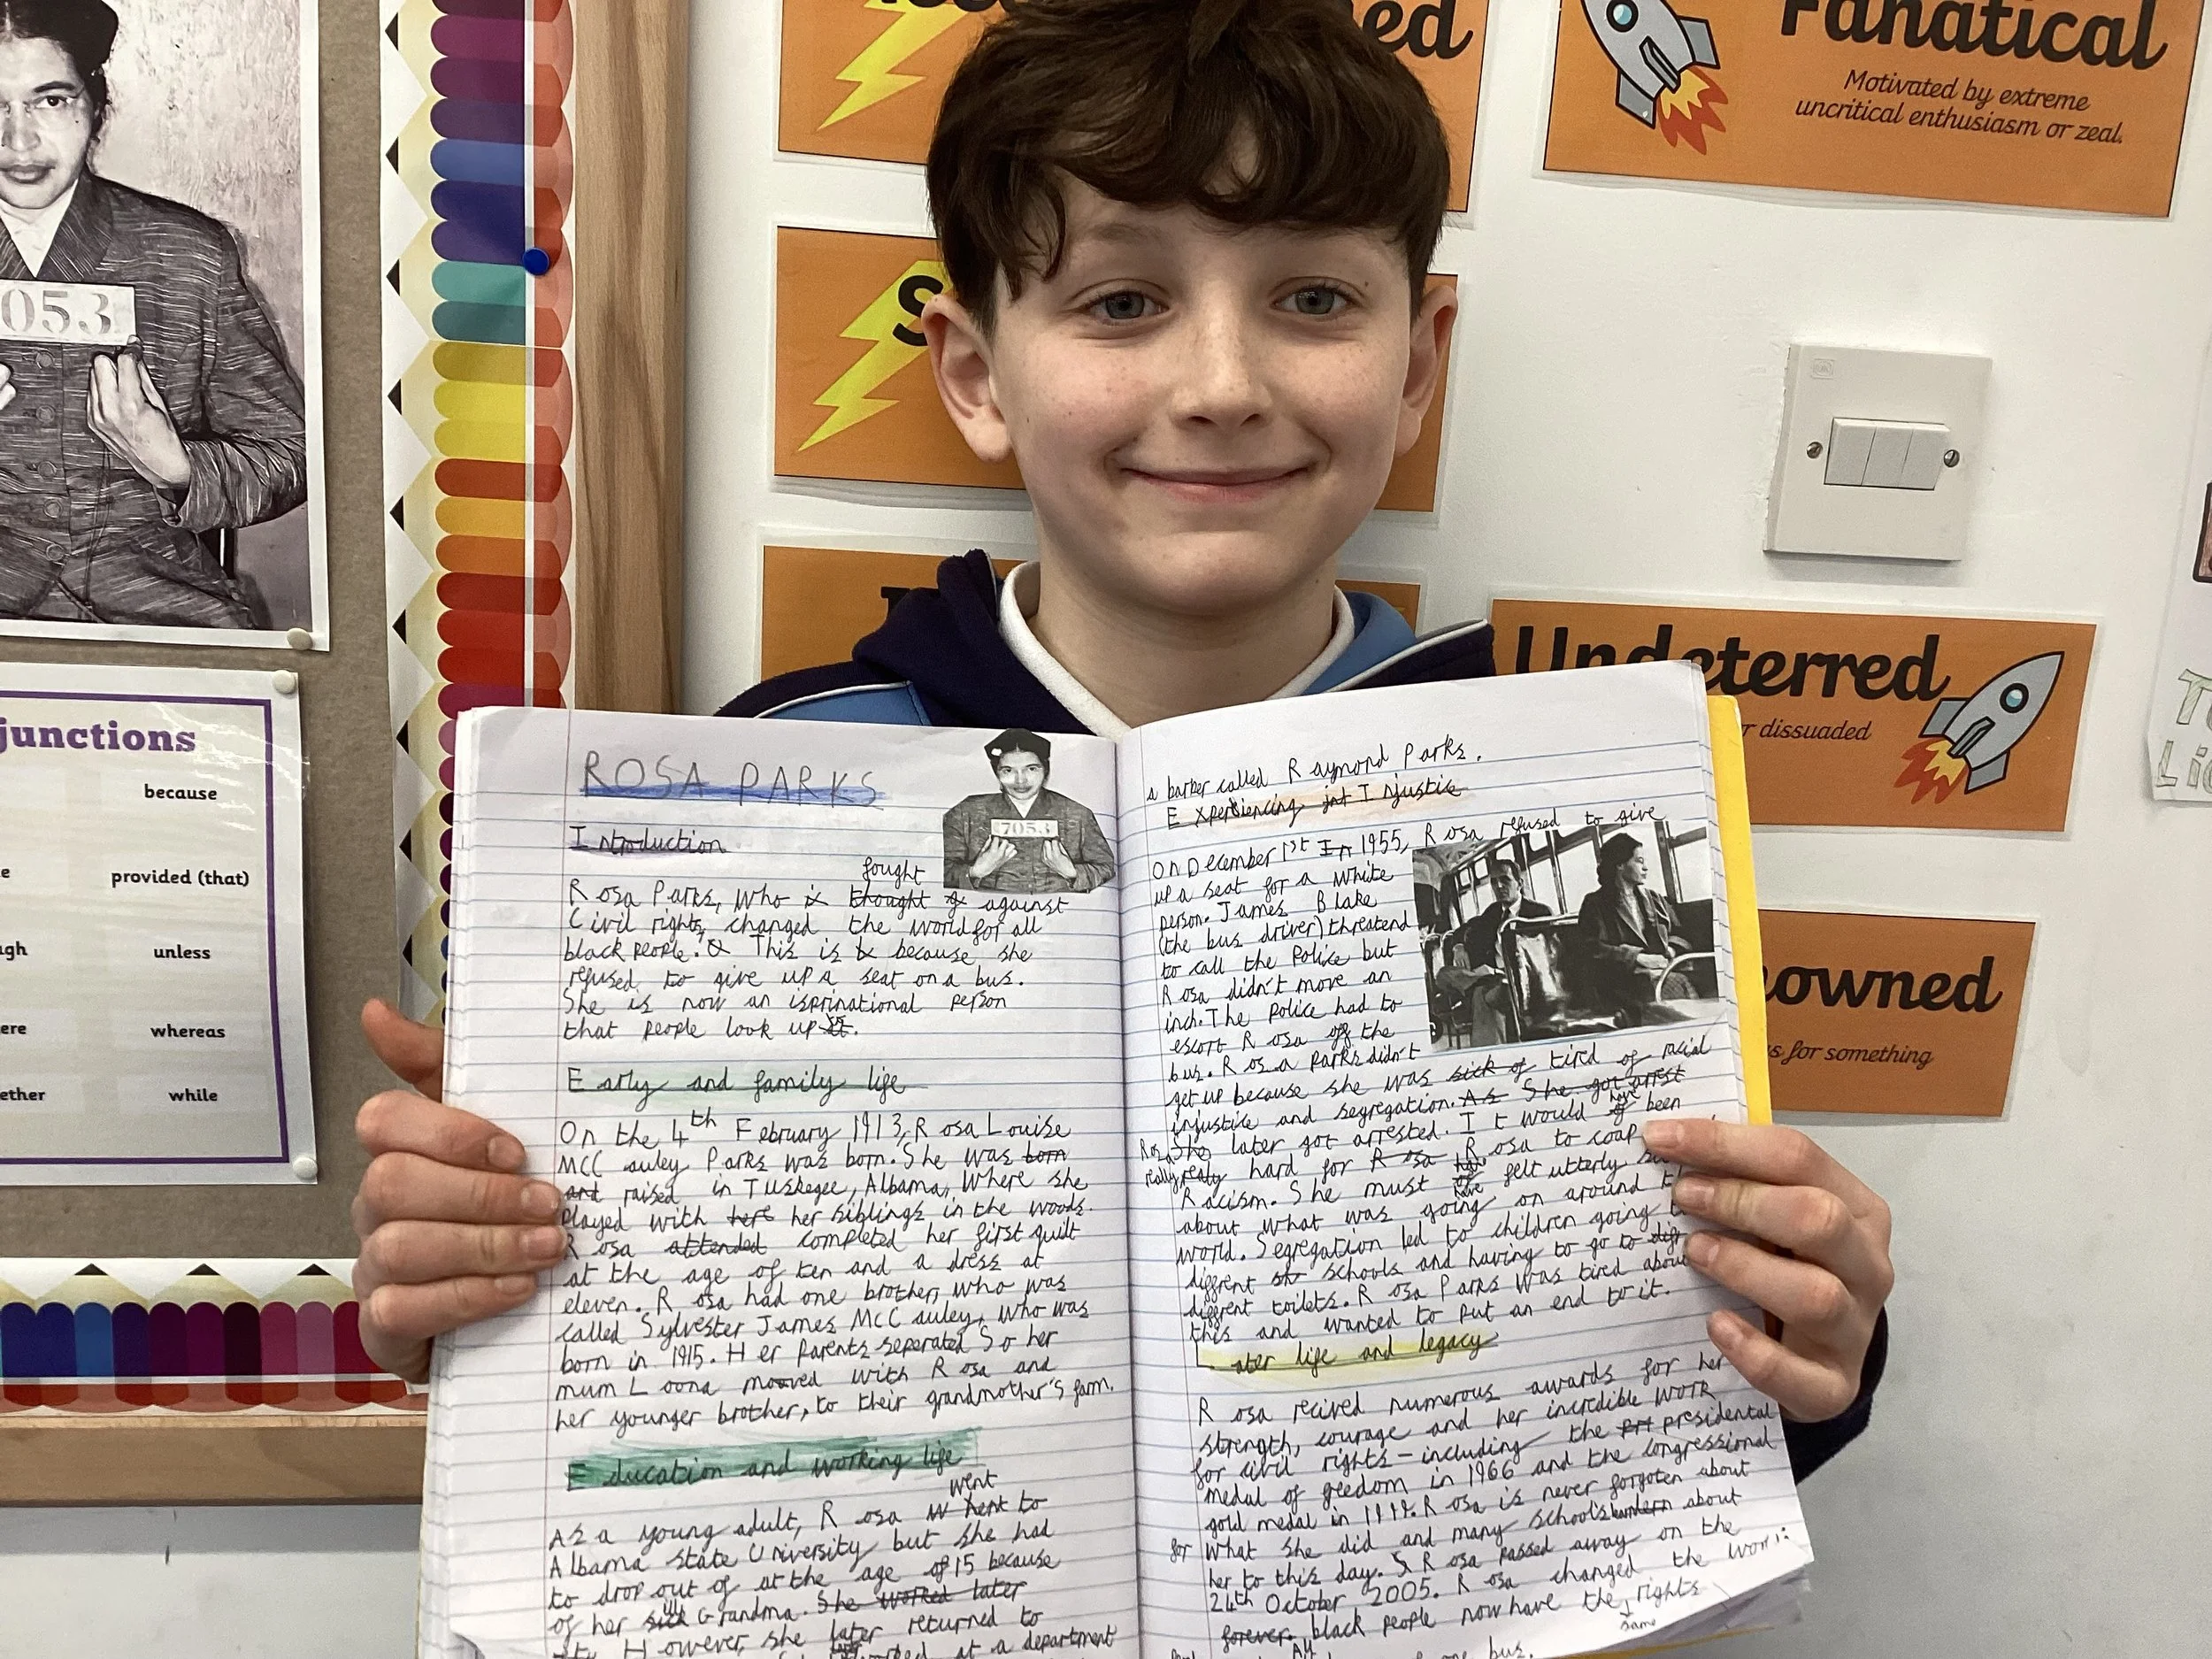 053
junctions
because
provided (that)
unless
whereas
while
ed
Fanatical
Motivated by extreme
uncritical enthusiasm or zeal.
S
Undeterred
r dissuaded
owned
s for something
ROSA PARKS
7053
Introduction
fought
Rosa Parks, who is thought against
Civil rights, changed the world for all
black people. This is because she
refused to give up a seat on a bus.
She is now an isprinational person
that people look up
Early and family life
On the 4th February 1913, Rosa Louise
MCCauley Parks was born. She was born
and raised in Tuskegee, Albama, where she
played with here her siblings in the woods.
Rosa attended completed her first quilt
at the age of ten and a dress at
eleven. Rosa had one brother, who was
called Sylvester James McCauley, who was
born in 1915. Her parents seperated So her
mum Loona mooved with Rosa and
her younger brother, to their grandmother's farm.
Education and working life
went
As a young adult, Rosa to
Albama State University but she had
to drop out of at the age of 15 because
of her sick ill Grandma. She worked later
However, she later returned to
worked at a department
a barber called Raymond Parks.
Experiencing Injustice
On December 1st In 1955, Rosa refused to give
up a seat for a white
person. James Blake
(the bus driver) threatend
to call the Police but
Rosa didn't move an
inch. The police had to
escort Rosa off the
bus. Rosa Parks didn't
get up because she was sick of tired of racial
injustice and segregation. As She got arrest
Rosa She later got arrested. It would of have been
really realy hard for Rosa Rosa to coap
Racism. She must of have felt utterly
about what was going on around
world. Segregation led to children going
different schools and having to go to
different toilets. Rosa Parks was tired about
this and wanted to put an end to it.
Later life and legacy
Rosa recived numerous awards for her
strength, courage and her incredible work
for civil rights - including the presidential
medal of freedom in 1966 and the congressional
gold medal in Rosa is never forgoten about
for what she did and many school's about
her to this day. Rosa passed away on the
24th October 2005. Rosa changed the
forever. black people now have the rights
same
bus.